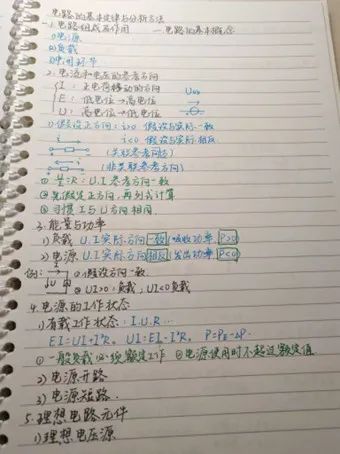 电路的基本定律与分析方法
一.电路组成及作用 — 电路的基本概念
1)电源
2)负载
3)中间环节
2.电流和电压的参考方向
I：正电荷移动的方向 Uab
E：低电位→高电位
U：高电位→低电位
1)假设正方向：i>0 假设与实际一致
i i<0 假设与实际相反
(关联参考方向)
i
(非关联参考方向)
① R：U.I参考方向一致
②先假定正方向，再列式计算
③习惯I与U方向相同.
3.能量与功率
1)负载 U.I实际方向一致(吸收功率 P>0
2)电源 U.I实际方向相反(发出功率 P<0
例： I U R ①.假设方向一致.
②UI>0：负载；UI<0负载
4.电源的工作状态
1)有载工作状态：I.U.R...
EI=UI+I²R。 UI=EI-I²R。 P=PE-ΔP.
①一般负载 额定工作 ②电源使用时不超过额定值
2)电源开路
3)电源短路.
5.理想电路元件
1)理想电压源